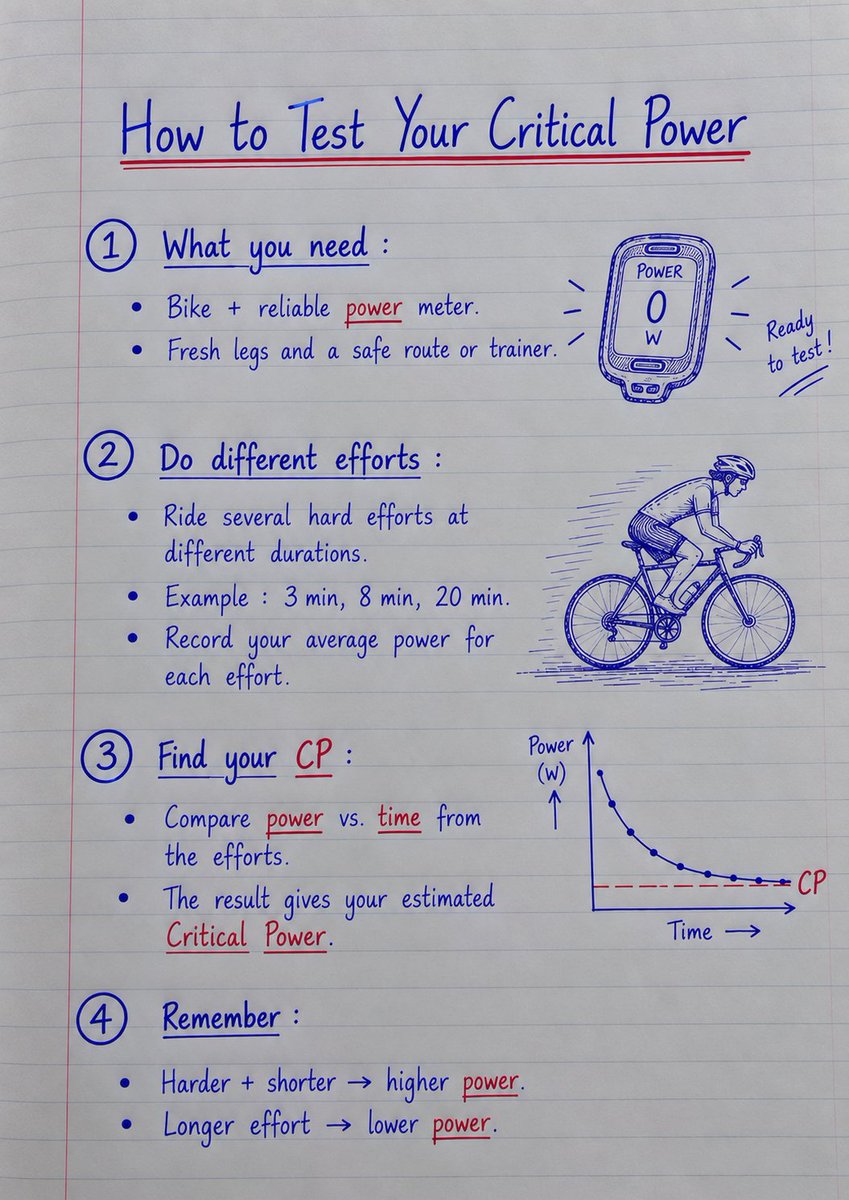 How to Test Your Critical Power
1 What you need :
• Bike + reliable power meter.
• Fresh legs and a safe route or trainer.
POWER
0
W
Ready
to test!
2 Do different efforts :
• Ride several hard efforts at
different durations.
• Example : 3 min, 8 min, 20 min.
• Record your average power for
each effort.
3 Find your CP :
• Compare power vs. time from
the efforts.
• The result gives your estimated
Critical Power.
Power
(W)
CP
Time →
4 Remember :
• Harder + shorter → higher power.
• Longer effort → lower power.